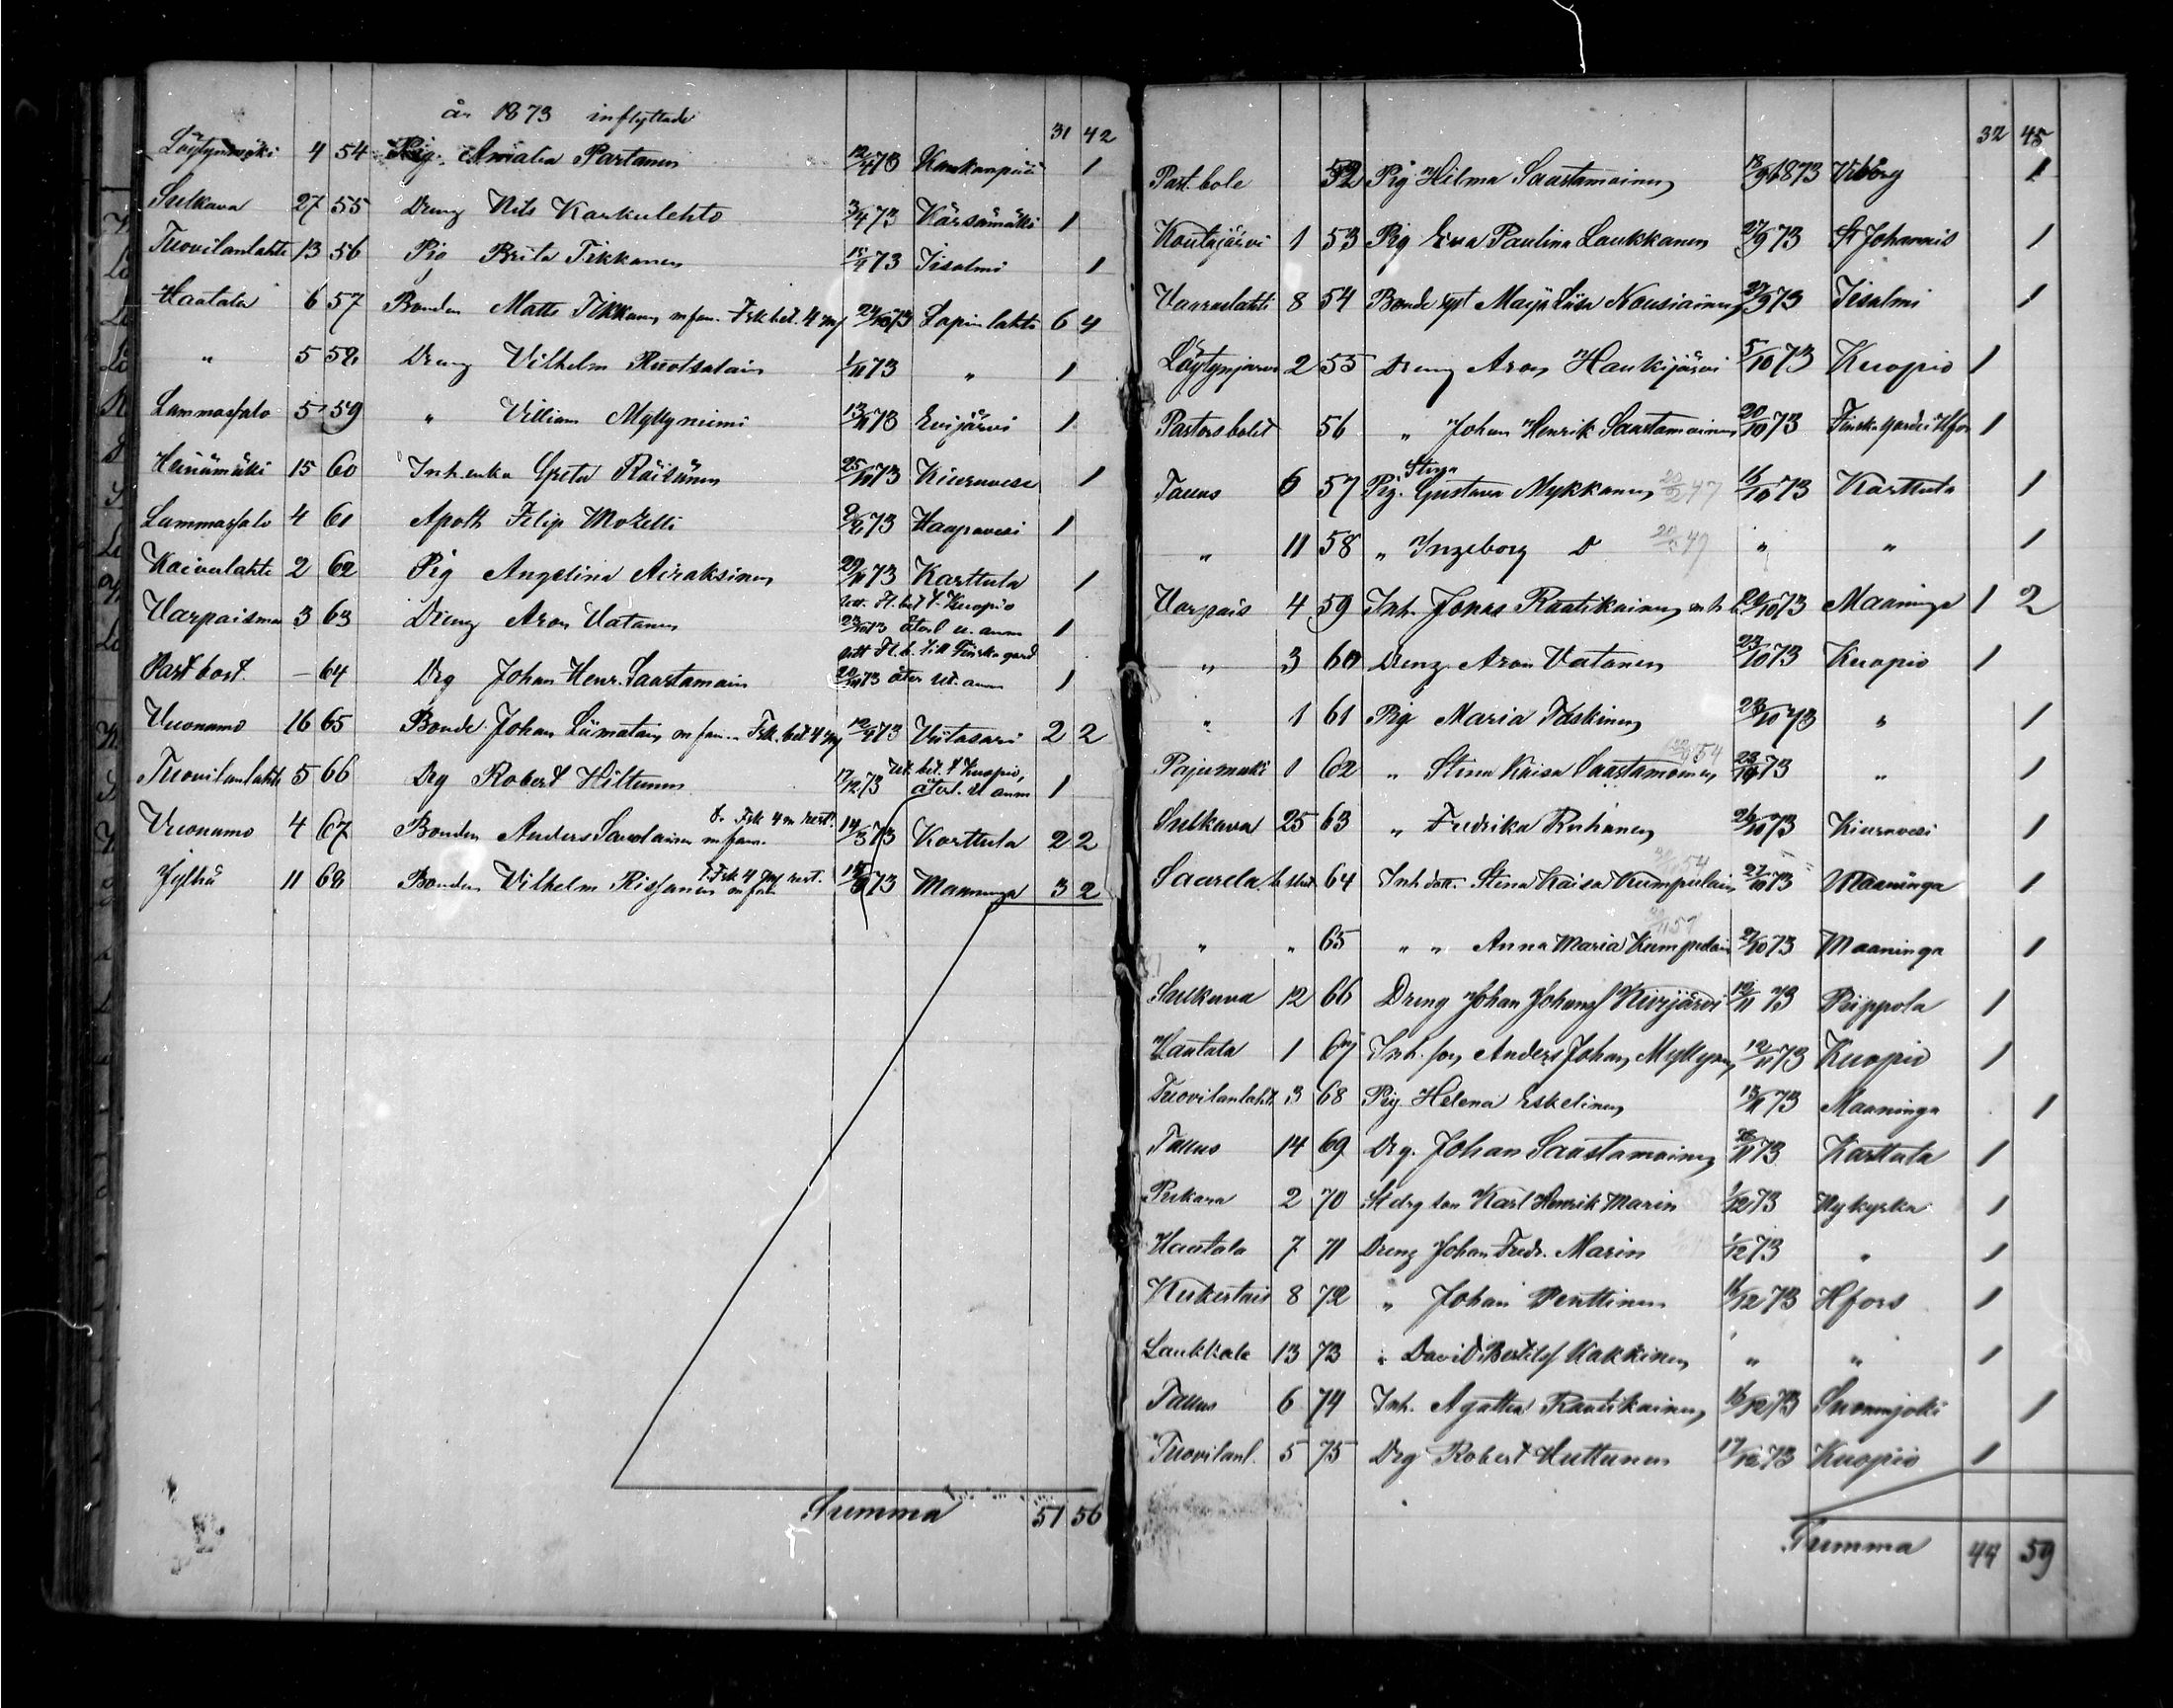 år 1873 inflyttade
31 42
Löytynmäki 4 54 Pig. Amalia Partanen 12/4 73 Kankanpää 1
Sulkava 27 55 Dreng Nils Karkulehto 3/4 73 Kärsämäki 1
Tuovilanlahti 13 56 Pig Brita Tikkanen 73 Iisalmi 1
Hautala 6 57 Bonden Matts Tikkanen m fam. Fsk bet. 4 73 Lapinlahti 6 4
" 5 58 Dreng Vilhelm Ruotsalain 1/11 73 " 1
Lammassalo 5 59 " Villiam Myllyniemi 13/11 73 Evijärvi 1
Heinämäki 15 60 Inh. enka Greta Räisänen 25/10 73 Kiuruvesi 1
Lammassalo 4 61 Apoth Filip Mozelli 73 Haapavesi 1
Kaivulahti 2 62 Pig Angelina Airaksinen 29/11 73 Karttula 1
Utt. Fl. bet t. Kuopio
Varpaisma 3 63 Dreng Aron Vatanen 23/10 73 återl u. anm 1
Utt Fl. b. till Finska gard
Past bost. — 64 Drg Johan Henr. Saastamain 20/10 73 åter ut. anm 1
Vuonamo 16 65 Bonde Johan Liimatain m fam. Fsk. bet 4 73 Viitasari 2 2
Ut. bet. t Kuopio,
Tuovilanlahti 5 66 Drg Robert Hiltunen 17/12 73 återl. ut anm 1
Vuonamo 4 67 Bonden Anders Savolainen m fam. Fsk 4 m rest. 14/3 73 Karttula 2 2
Jylhä 11 68 Bonden Vilhelm Rissanen m fam Fsk 4 rest. 73 Maaninga 3 2
Summa 51 56
32 45
Past. bole 52 Pig Hilma Saastamoinen 1873 Viborg 1
Koutajärvi 1 53 Pig Eva Paulina Laukkanen 27/9 73 St Johannis 1
Vaaraslahti 8 54 Bonde Maija Liisa Nousiainen 27/9 73 Iisalmi 1
Löytynjärvi 2 55 Dreng Aron Haukijärvi 5/10 73 Kuopio 1
Pastors bolet 56 " Johan Henrik Saastamoinen 20/10 73 Finska gardei Hfors 1
Stina
Tallus 6 57 Pig. Gustava Mykkanen 47 16/10 73 Karttula 1
" 11 58 " Ingeborg D 49 " " 1
Varpais 4 59 Inh. Jonas Rautikainen m h 73 Maaninga 1 2
" 3 60 Dreng Aron Vatanen 23/10 73 Kuopio 1
" 1 61 Pig Maria Taskinen 23/10 73 " 1
Pajumäki 1 62 " Stina Kaisa Saastamoinen 54 23/10 73 " 1
Sulkava 25 63 " Fredrika Ruhanen 26/10 73 Kiuruvesi 1
Saarela 64 Inh dott. Stina Kaisa Kumpulain 54 27/10 73 Maaninga 1
" " 65 " " Anna Maria Kumpulain 27/10 73 Maaninga 1
Sulkava 12 66 Dreng Johan Johanss Kivijärvi 12/11 73 Piippola 1
Hautala 1 67 Inh. son Anders Johan Myllynen 12/11 73 Kuopio 1
Tuovilanlaht 3 68 Pig Helena Eskelinen 13/11 73 Maaninga 1
Tallus 14 69 Drg. Johan Saastamoinen 73 Karttula 1
Petkana 2 70 St drg son Karl Henrik Marin 1/12 73 Nykyrka 1
Hautala 7 71 Dreng Johan Fredr. Marin 1/12 73 " 1
Kukertais 8 72 " Johan Penttinen 16/12 73 Hfors 1
Laukkala 13 73 " David Bertilss Kakkinen " " 1
Tallus 6 74 Inh. Agatha Rautikainen 16/12 73 Suonenjoki 1
Tuovilanl. 5 75 Drg Robert Huttunen 17/12 73 Kuopio 1
Summa 44 59